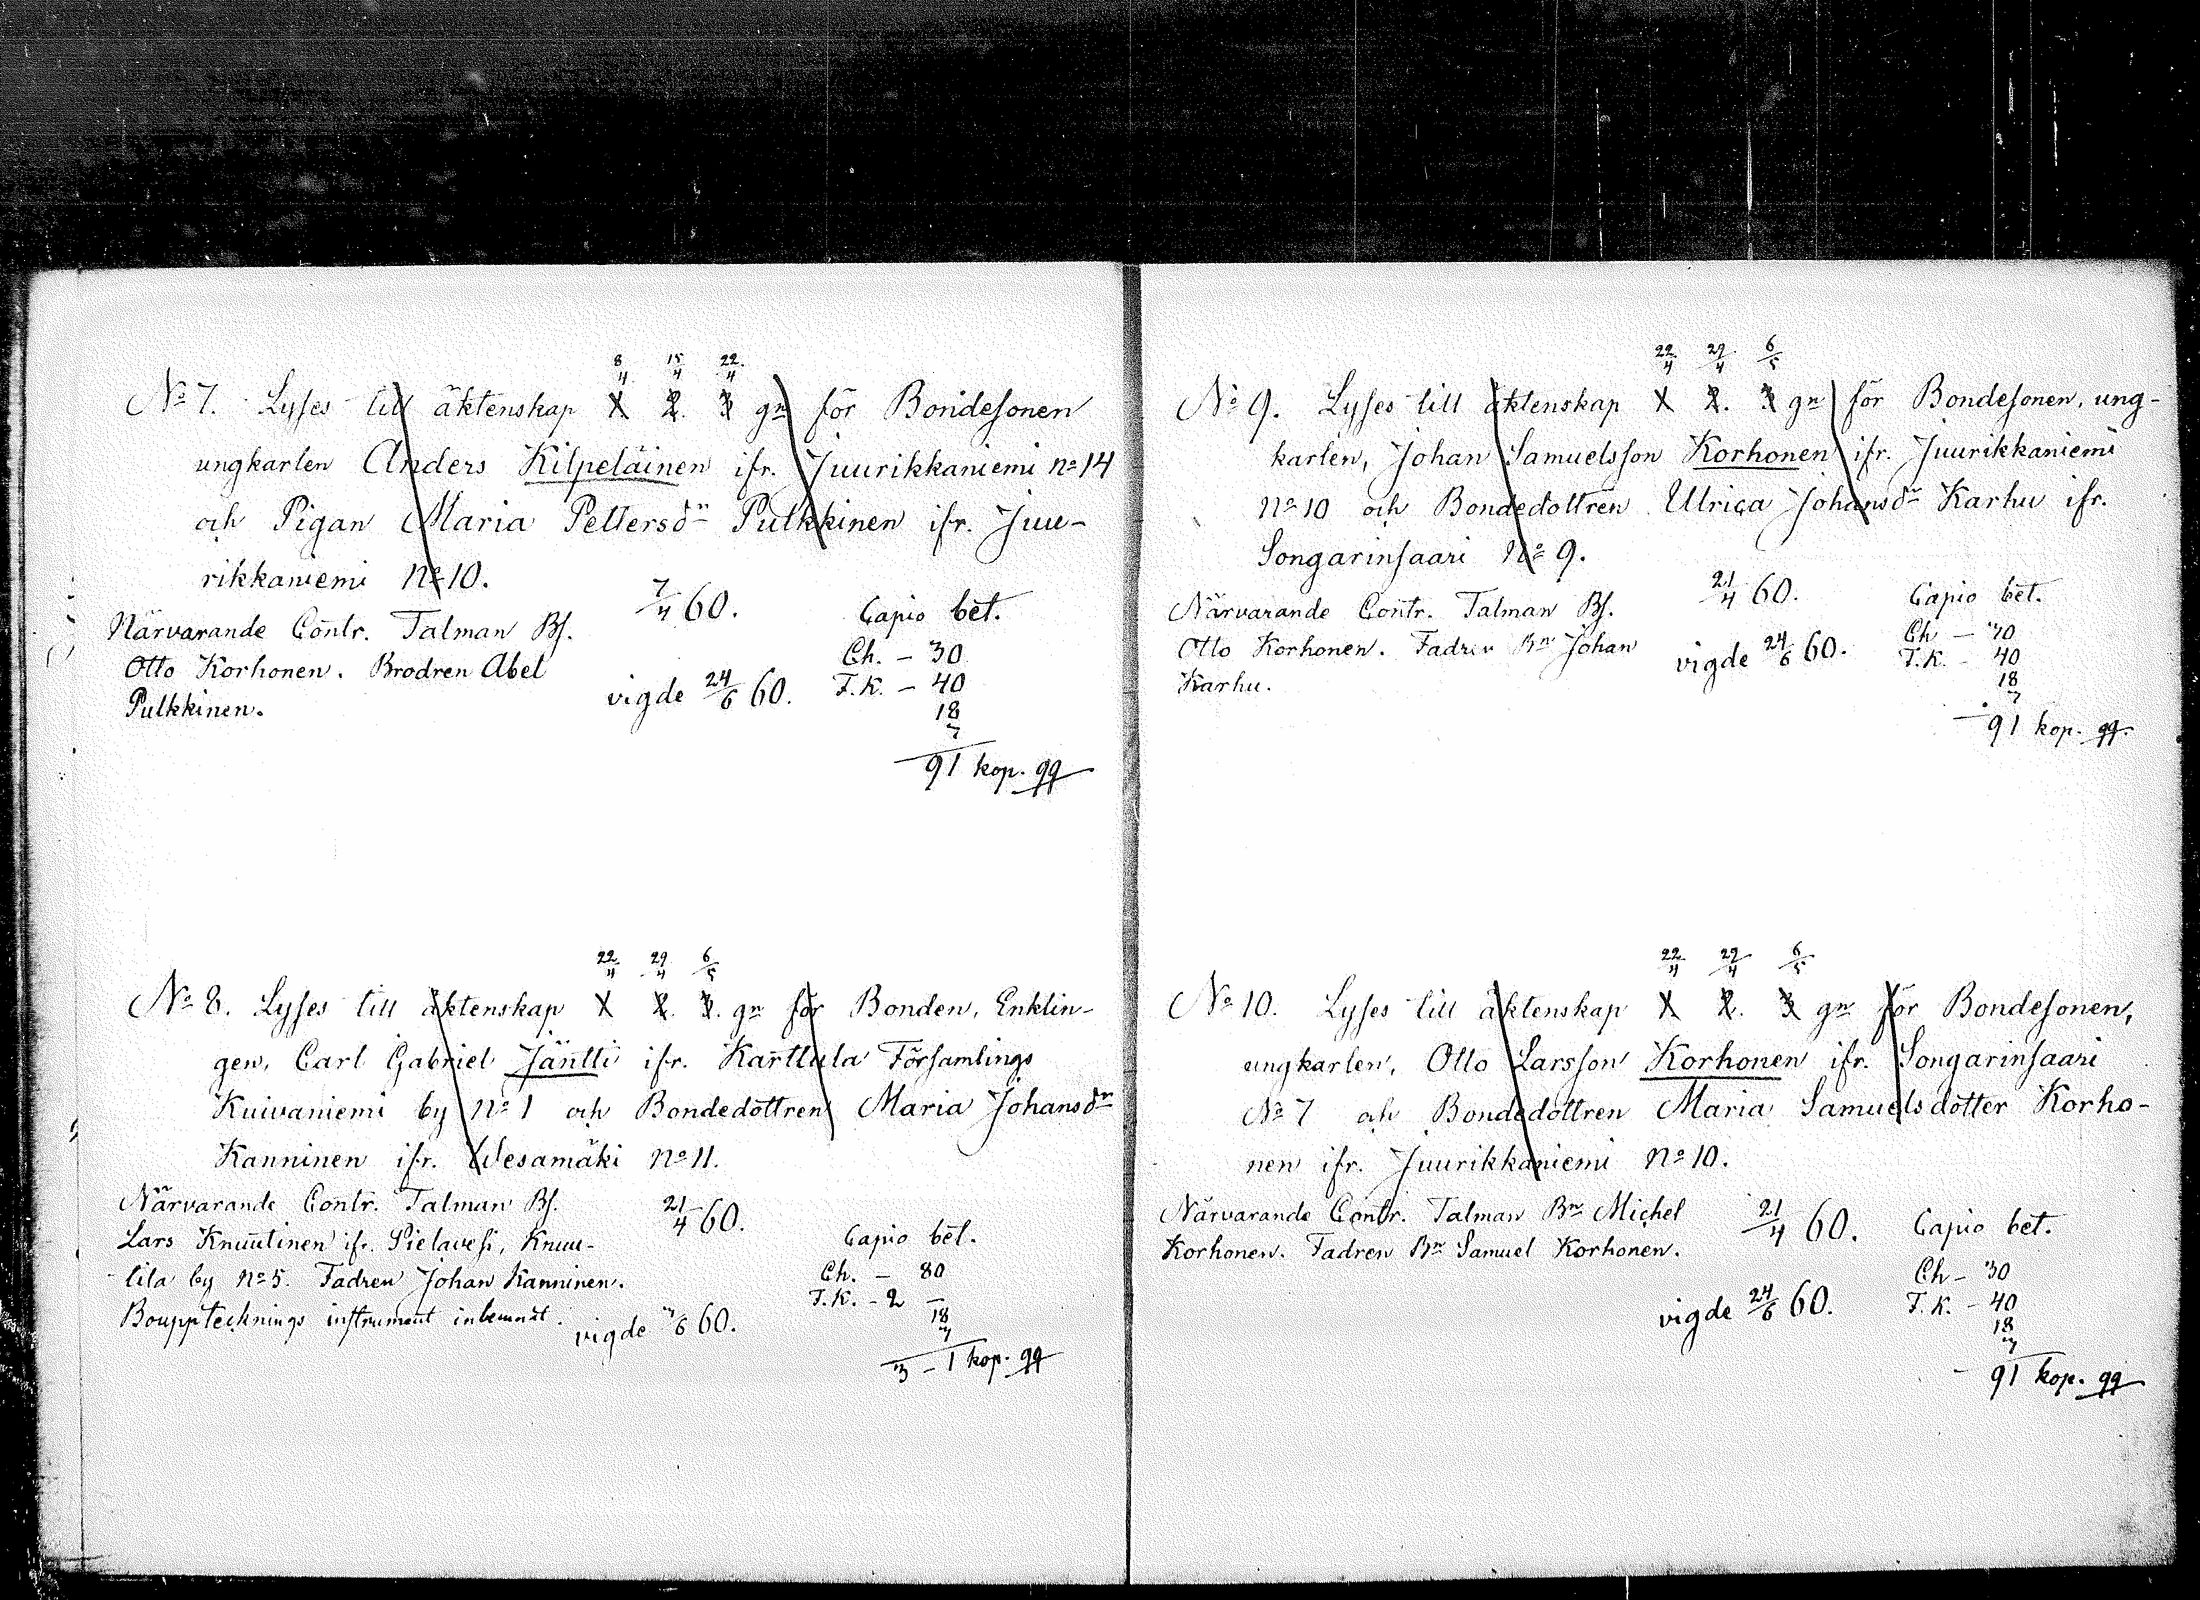 8/4 15/4 22/4
No 7. Lyses till äktenskap 1. 2. 3 gn för Bondesonen
ungkarlen Anders Kilpeläinen ifr. Juurikkaniemi no 14
och Pigan Maria Pettersdr Pulkkinen ifr. Juu-
rikkaniemi No 10.
7/4 60.
Närvarande Contr. Talman Bs.
Otto Korhonen. Brodren Abel
Pulkkinen.
vigde 24/6 60.
Capio bet.
Ch. - 30
F.K. - 40
18
7
91 kop.
22/4 29/4 6/5
No 8. Lyses till äktenskap 1 2. 3. gn för Bonden, Enklin-
gen, Carl Gabriel Jäntti ifr. Karttula Församlings
Kuivaniemi by no 1 och Bondedottren Maria Johansdr
Kanninen ifr. Wesamäki no 11.
Närvarande Contr. Talman Bs.
Lars Knuutinen ifr. Pielavesi, Knuu-
tila by no 5. Fadren Johan Kanninen.
Boupptecknings instrument
21/4 60.
vigde 60.
Capio bet.
Ch. - 80
F.K. - 2 -
18
7
3 - 1 kop.
22/4 29/4 6/5
No 9. Lyses till äktenskap 1 2. 3 gn för Bondesonen, ung-
karlen, Johan Samuelsson Korhonen ifr. Juurikkaniemi
no 10 och Bondedottren Ulrica Johansdr Karhu ifr.
Songarinsaari No 9.
Närvarande Contr. Talman Bs.
Otto Korhonen. Fadren Bn Johan
Karhu.
21/4 60.
vigde 24/6 60.
Capio bet.
Ch - 30
F.K. - 40
18
7
91 kop.
22/4 29/4 6/5
No 10. Lyses till äktenskap 1 2. 3 gn för Bondesonen,
ungkarlen, Otto Larsson Korhonen ifr. Songarinsaari
No 7 och Bondedottren Maria Samuelsdotter Korho-
nen ifr. Juurikkaniemi no 10.
Närvarande Contr. Talman Bn Michel
Korhonen. Fadren Bn Samuel Korhonen.
21/4 60.
vigde 24/6 60.
Capio bet.
Ch - 30
F.K. - 40
18
7
- 91 kop.